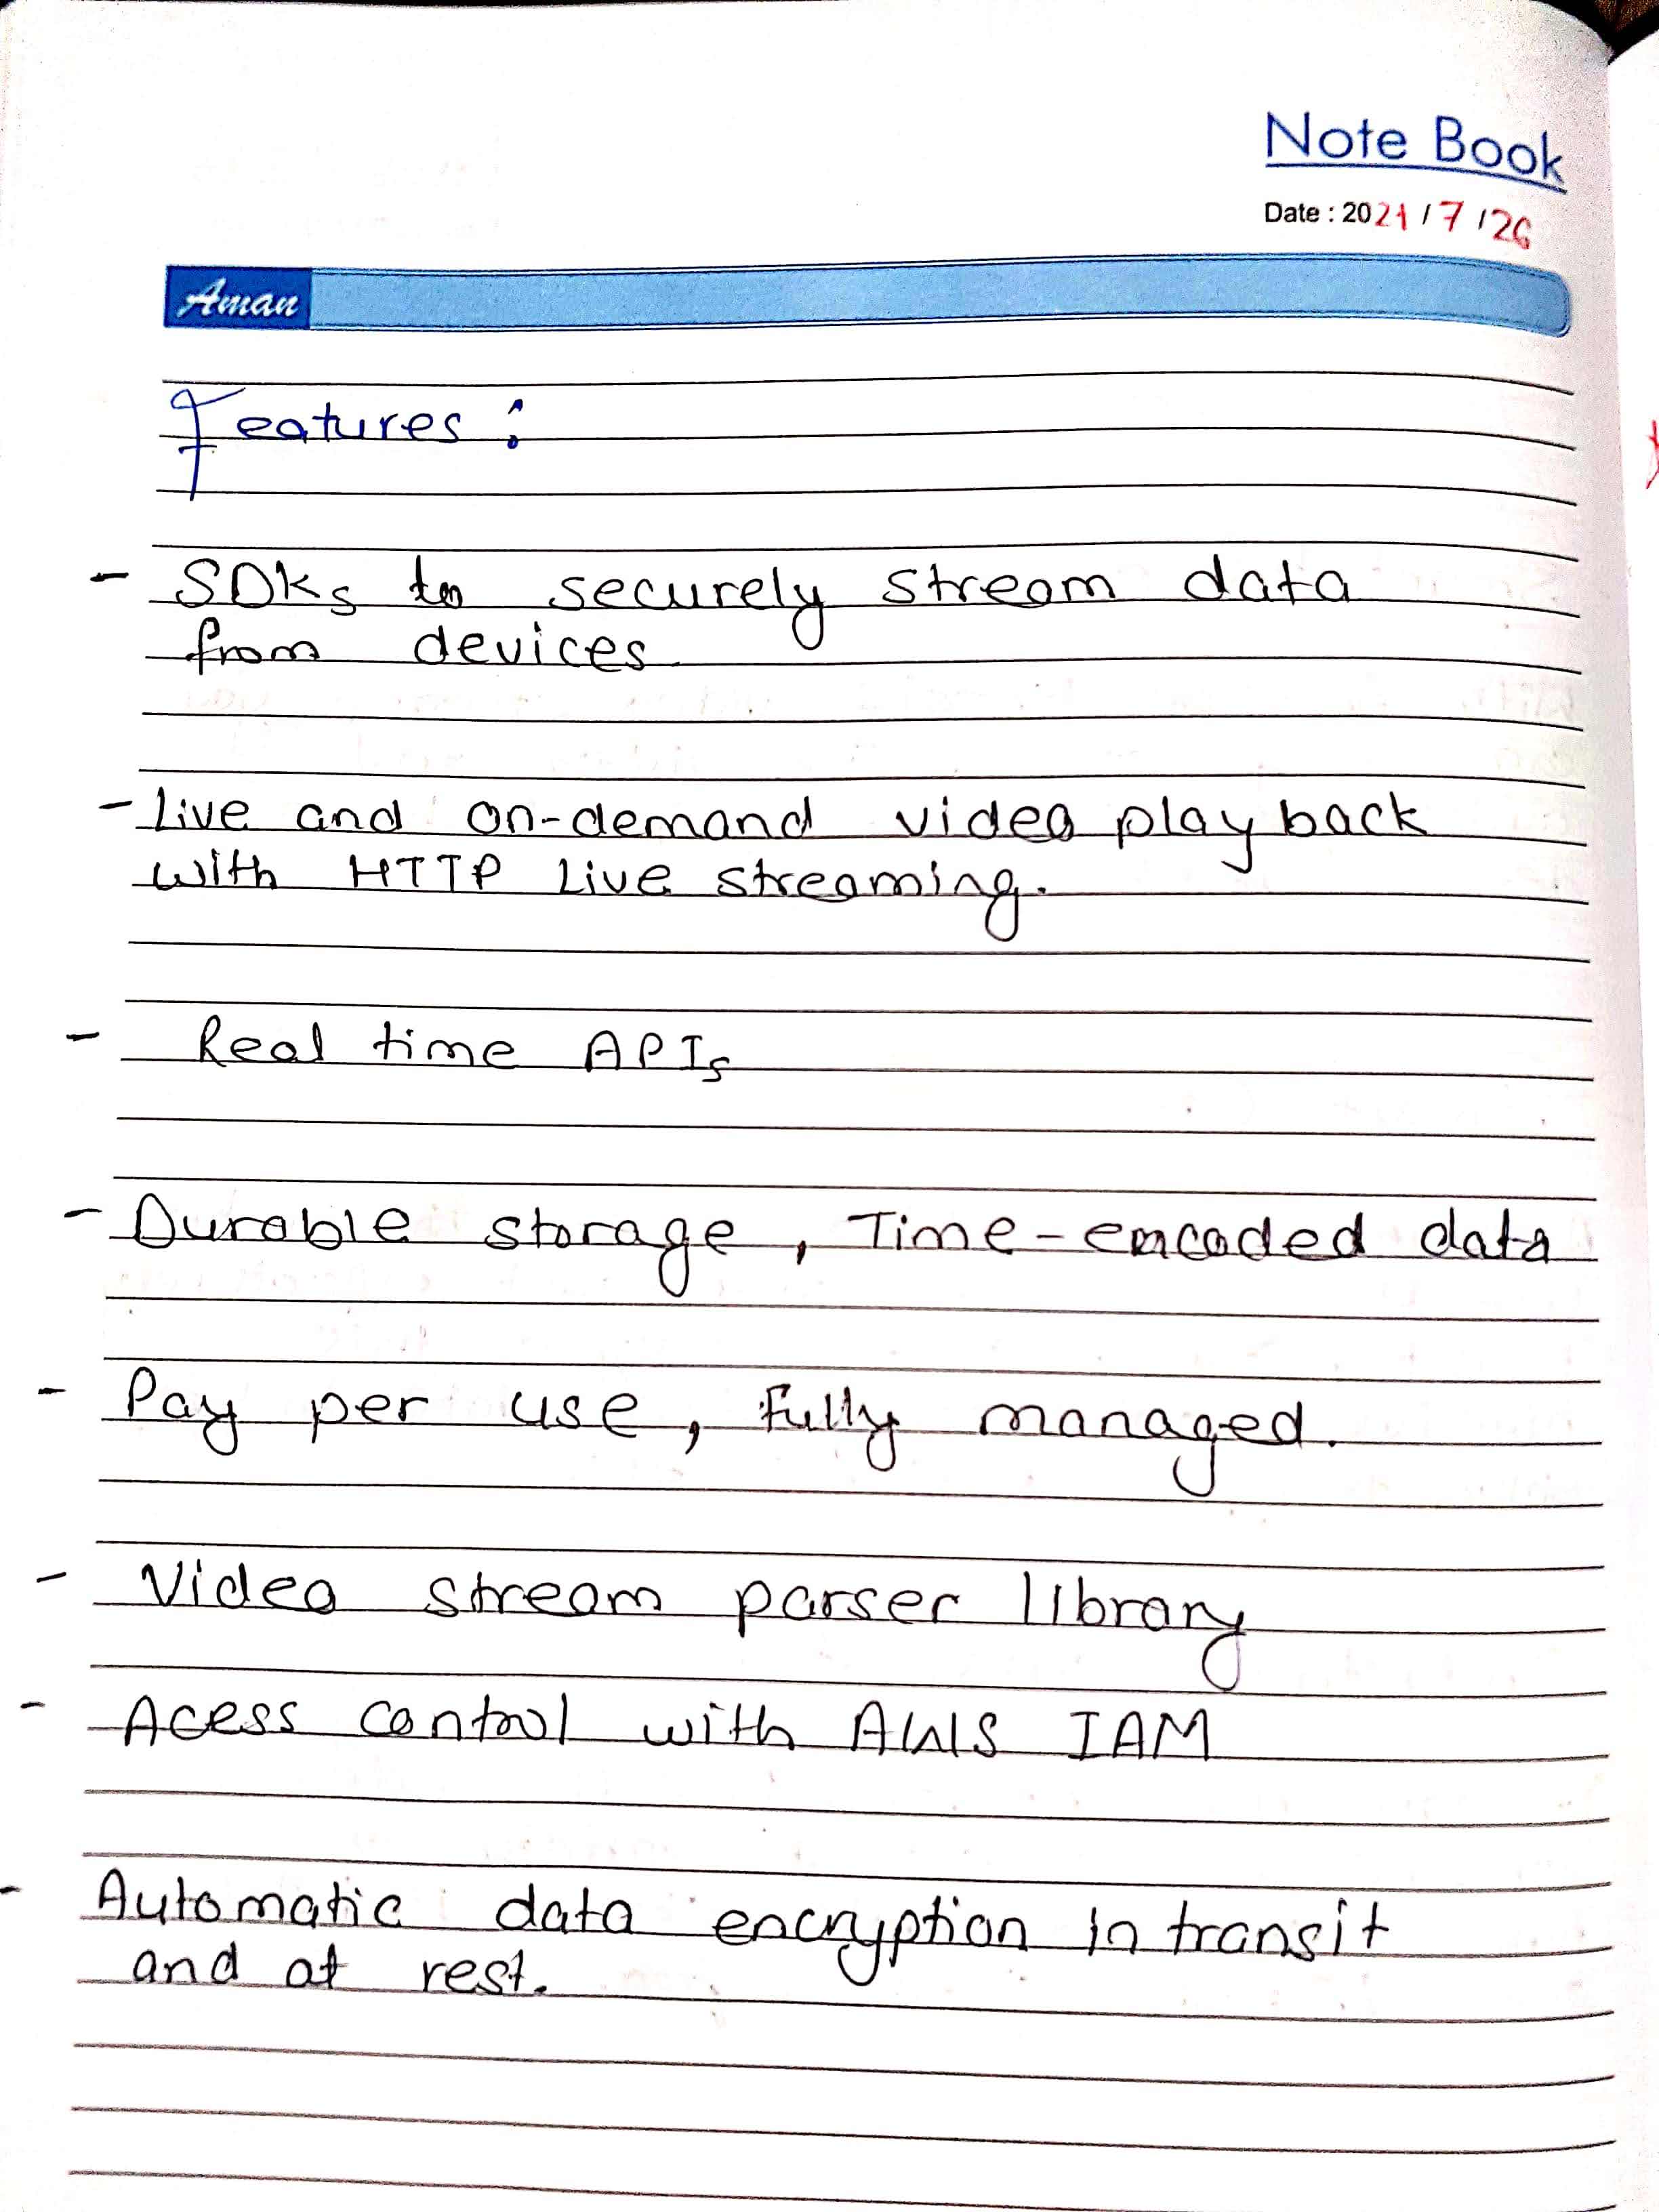 Note Book
Date : 2021 / 7 / 26
Aman
Features :
- SDKs to securely stream data
from devices
- Live and on-demand video playback
with HTTP Live streaming.
- Real time APIs
- Durable storage, Time-encoded data
- Pay per use, Fully managed.
- Video stream parser library
- Acess control with AWS IAM
- Automatic data encryption in transit
and at rest.